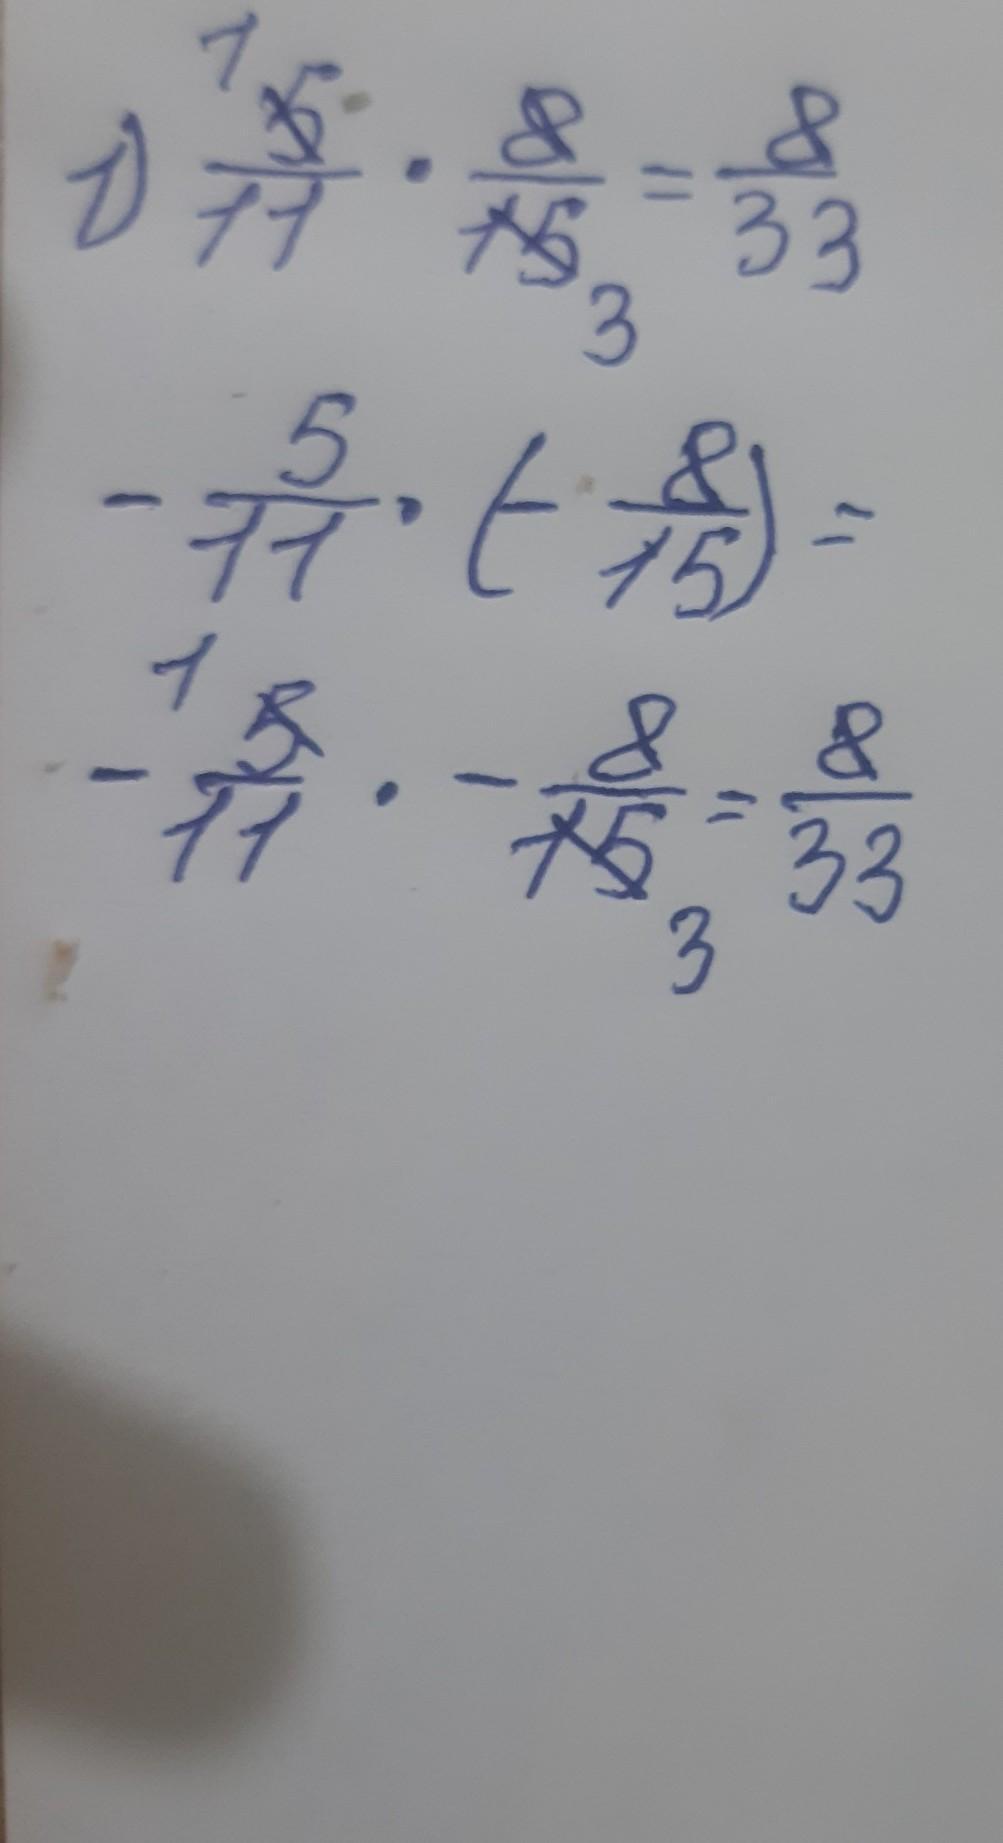 1) 1 5/11 · 8/15 3 = 8/33
- 5/11 · (- 8/15) =
1 - 5/11 · - 8/15 3 = 8/33